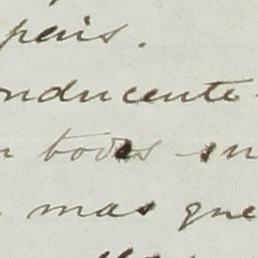 pais.
nducente
todos su
mas que